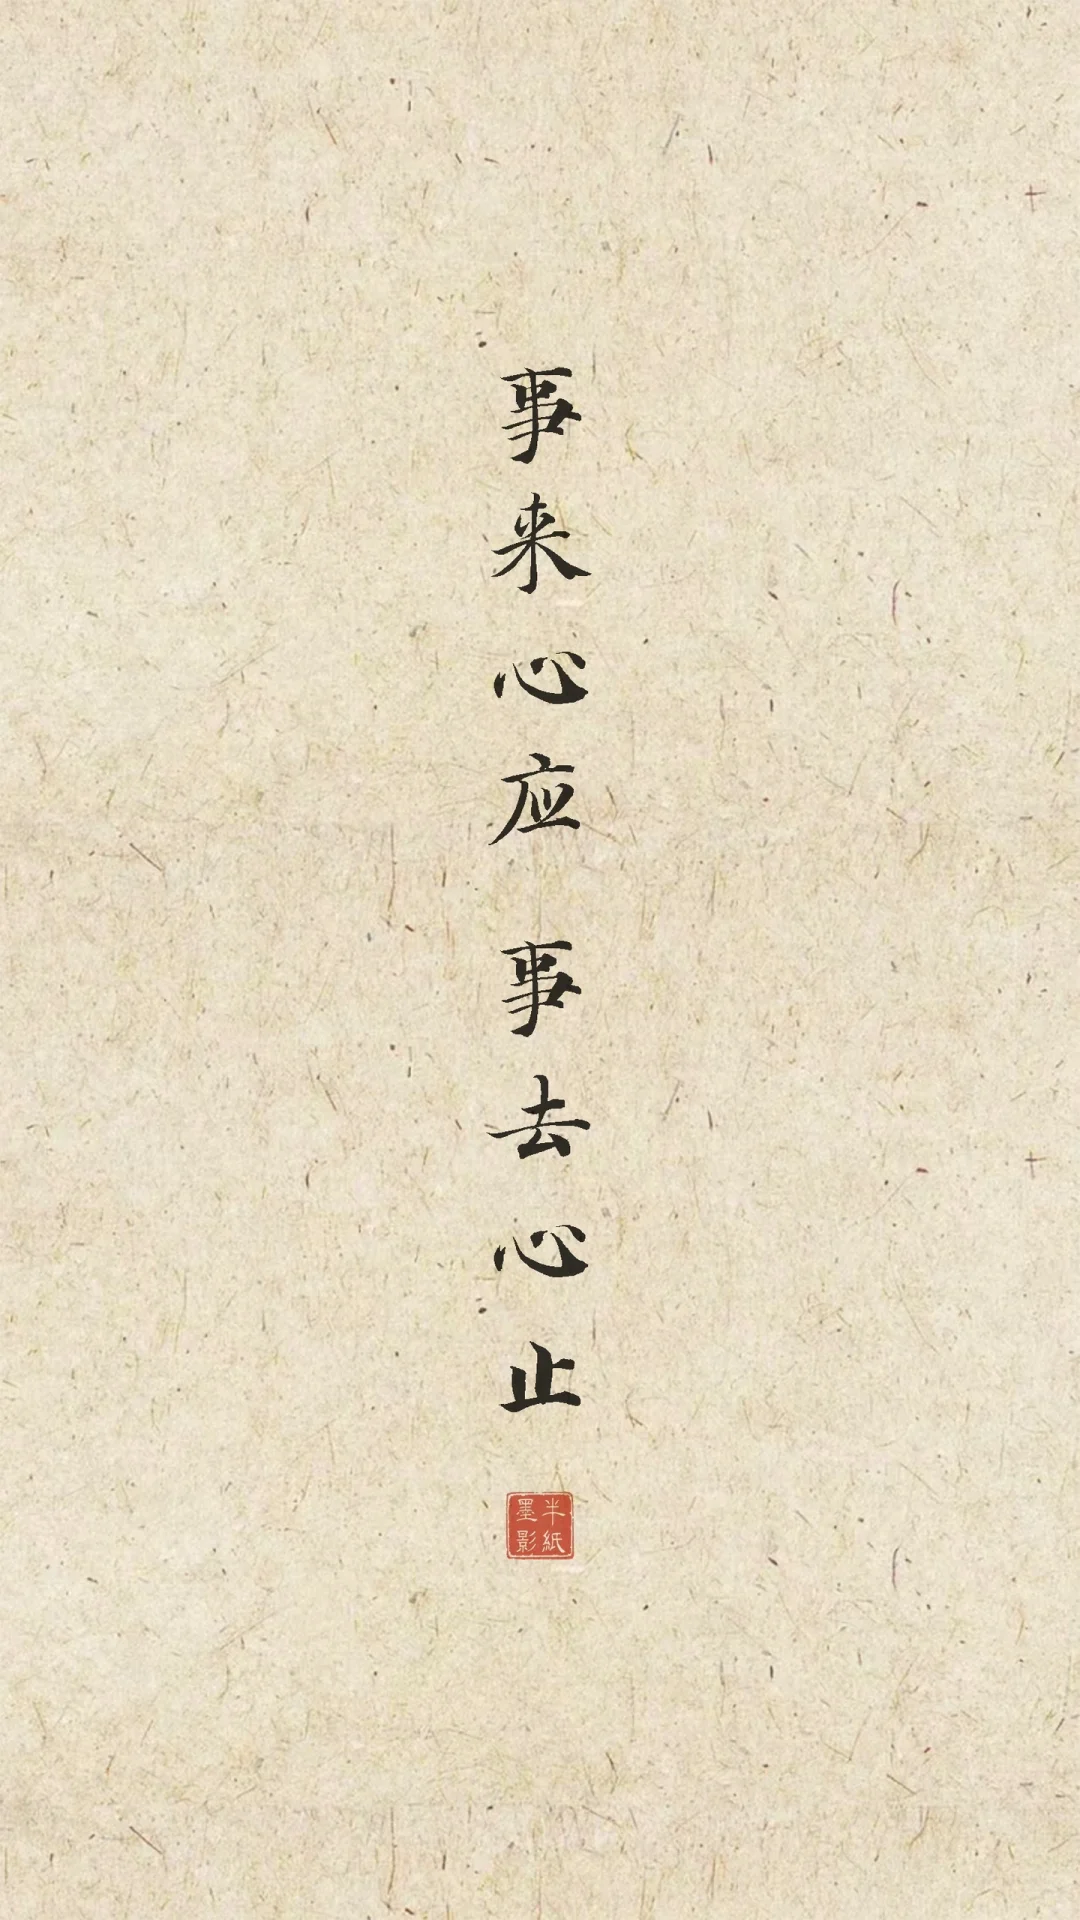 事来心应 事去心止
半紙
墨影